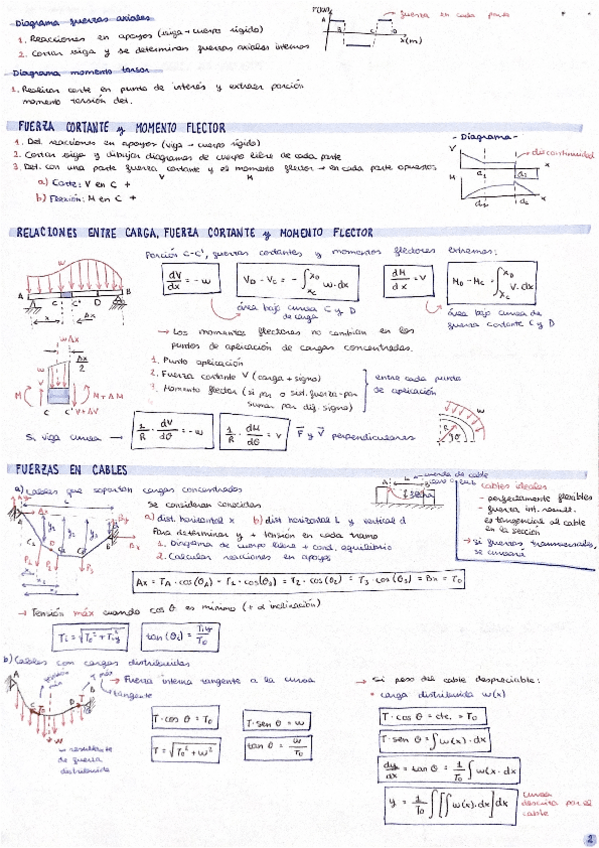 Diagrama fuerzas axiales
1. Reacciones en apoyos (viga → cuerpo rígido)
2. Cortar viga y se determinan fuerzas axiales internas
fuerza en cada parte
x(m)
Diagrama momento torsor
1. Realizar corte en punto de interés y extraer porción
momento torsión det.
FUERZA CORTANTE y MOMENTO FLECTOR
1. Det. reacciones en apoyos (viga → cuerpo rígido)
2. Cortar viga y dibujar diagramas de cuerpo libre de cada parte
3. Det. con una parte fuerza cortante V y momento flector M → en cada parte opuestos
a) Corte: V en C +
b) Flexión: M en C +
- Diagrama -
discontinuidad
V
M
x
RELACIONES ENTRE CARGA, FUERZA CORTANTE y MOMENTO FLECTOR
Porción C-C', fuerzas cortantes y momentos flectores extremos:
dV/dx = -w
V_D - V_C = -∫_{x_C}^{x_D} w·dx
dM/dx = V
M_D - M_C = ∫_{x_C}^{x_D} V·dx
área bajo curva C y D
de carga
área bajo curva de
fuerza cortante C y D
w
A
C
C'
D
B
x
Δx
→ Los momentos flectores no cambian en los
puntos de aplicación de cargas concentradas.
wΔx
Δx/2
M
M+ΔM
V
V+ΔV
1. Punto aplicación
2. Fuerza cortante V (carga + signo)
entre cada punto
de aplicación
Si viga curva →
1/R · dV/dθ = -w
1/R · dM/dθ = V
F y V perpendiculares
FUERZAS EN CABLES
a) Cables que soportan cargas concentradas
Se consideran conocidas
a) dist. horizontal x b) dist horizontal L y vertical d
Para determinar y + tensión en cada tramo
1. Diagrama de cuerpo libre + cond. equilibrio
2. Calcular reacciones en apoyos
cables ideales
- perfectamente flexibles
- fuerza int. result.
es tangencial al cable
en la sección
→ si fuerzas transversales,
se curvará
Ax = T_A·cos(θ_A) = T_1·cos(θ_1) = T_2·cos(θ_2) = T_3·cos(θ_3) = Bx = T_0
→ Tensión máx cuando cos θ es mínimo (+ α inclinación)
T_i = √(T_0² + T_iy²)
tan(θ_i) = T_iy/T_0
b) Cables con cargas distribuidas
→ Fuerza interna tangente a la curva
tangente
T·cos θ = T_0
T·sen θ = w
T = √(T_0² + w²)
tan θ = w/T_0
w resultante
de fuerza
distribuida
→ Si peso del cable despreciable:
• carga distribuida w(x)
T·cos θ = cte. = T_0
T·sen θ = ∫w(x)·dx
dy/dx = tan θ = 1/T_0 ∫w(x·dx
y = 1/T_0 ∫[∫w(x)·dx]dx
curva
descrita por el
cable
2